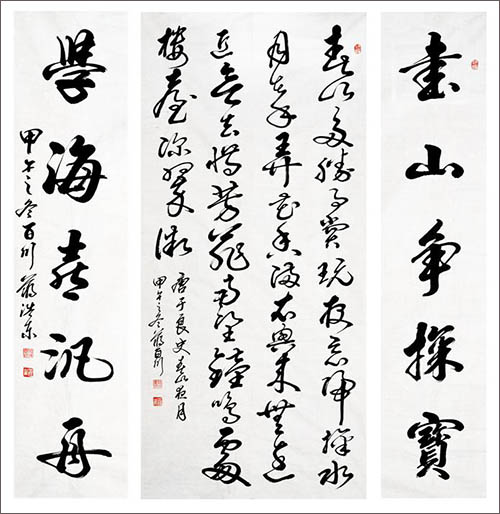 書山争探寶
春山多勝事賞玩夜忘歸掬水
月在手弄花香滿衣興來無遠
近欲去惜芳菲南望鐘鳴處
樓臺深翠微
唐于良史春山夜月
甲午之冬蔣百川
學海喜汎舟
甲午之冬百川蔣